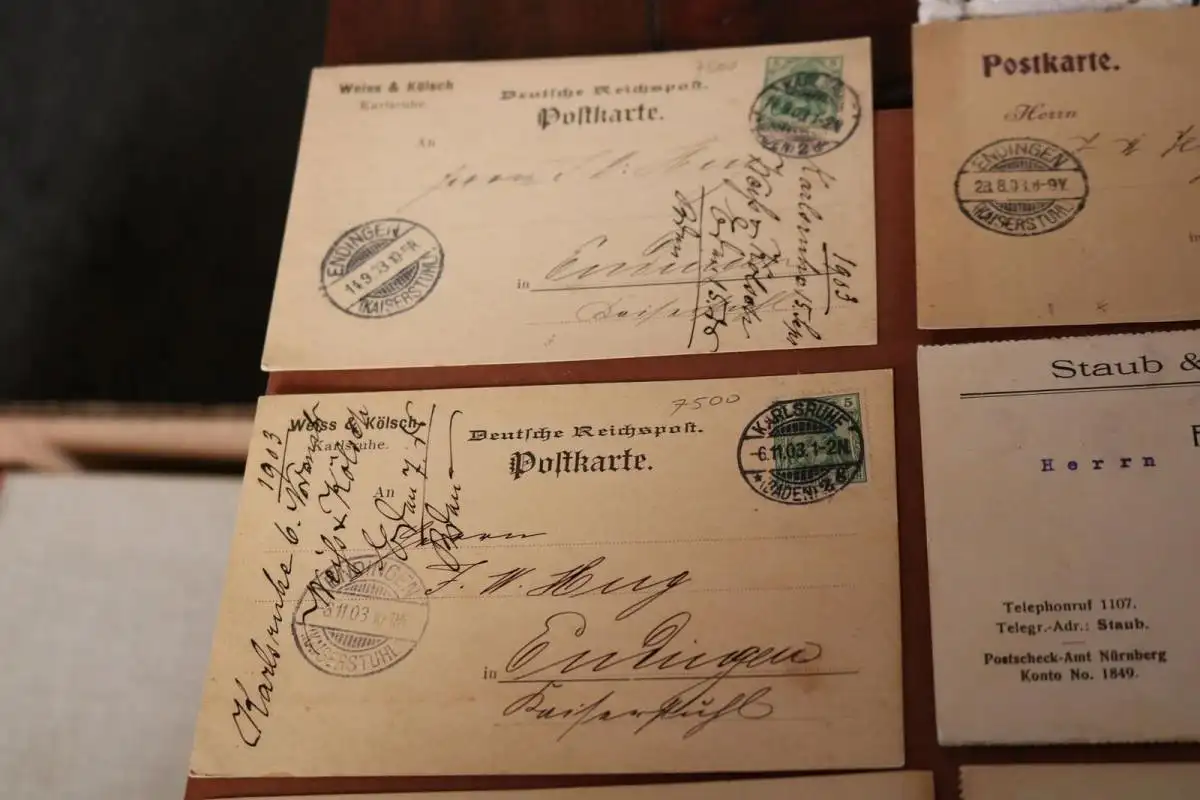 Weiss & Kölsch
Karlsruhe.
7500
Deutsche Reichspost.
Postkarte.
An
in
ENDINGEN
14.9.03.10-
(KAISERSTUHL)
1903
Karlsruhe 15.
Weiß & Kölsch
Weiss & Kölsch
Karlsruhe.
7500
Deutsche Reichspost.
Postkarte.
An
5
KARLSRUHE
-6.11.03.1-2N.
*(BADEN) 2
1903
Karlsruhe 6.
Weiß & Kölsch
Herrn
F. W. Hug
in Endingen
Kaiserstuhl
ENDINGEN
8.11.03
KAISERSTUHL
Postkarte.
Herrn
ENDINGEN
23.8.03.8-9V.
(KAISERSTUHL)
in
Staub &
Herrn
Telephonruf 1107.
Telegr.-Adr.: Staub.
Postscheck-Amt Nürnberg
Konto No. 1849.